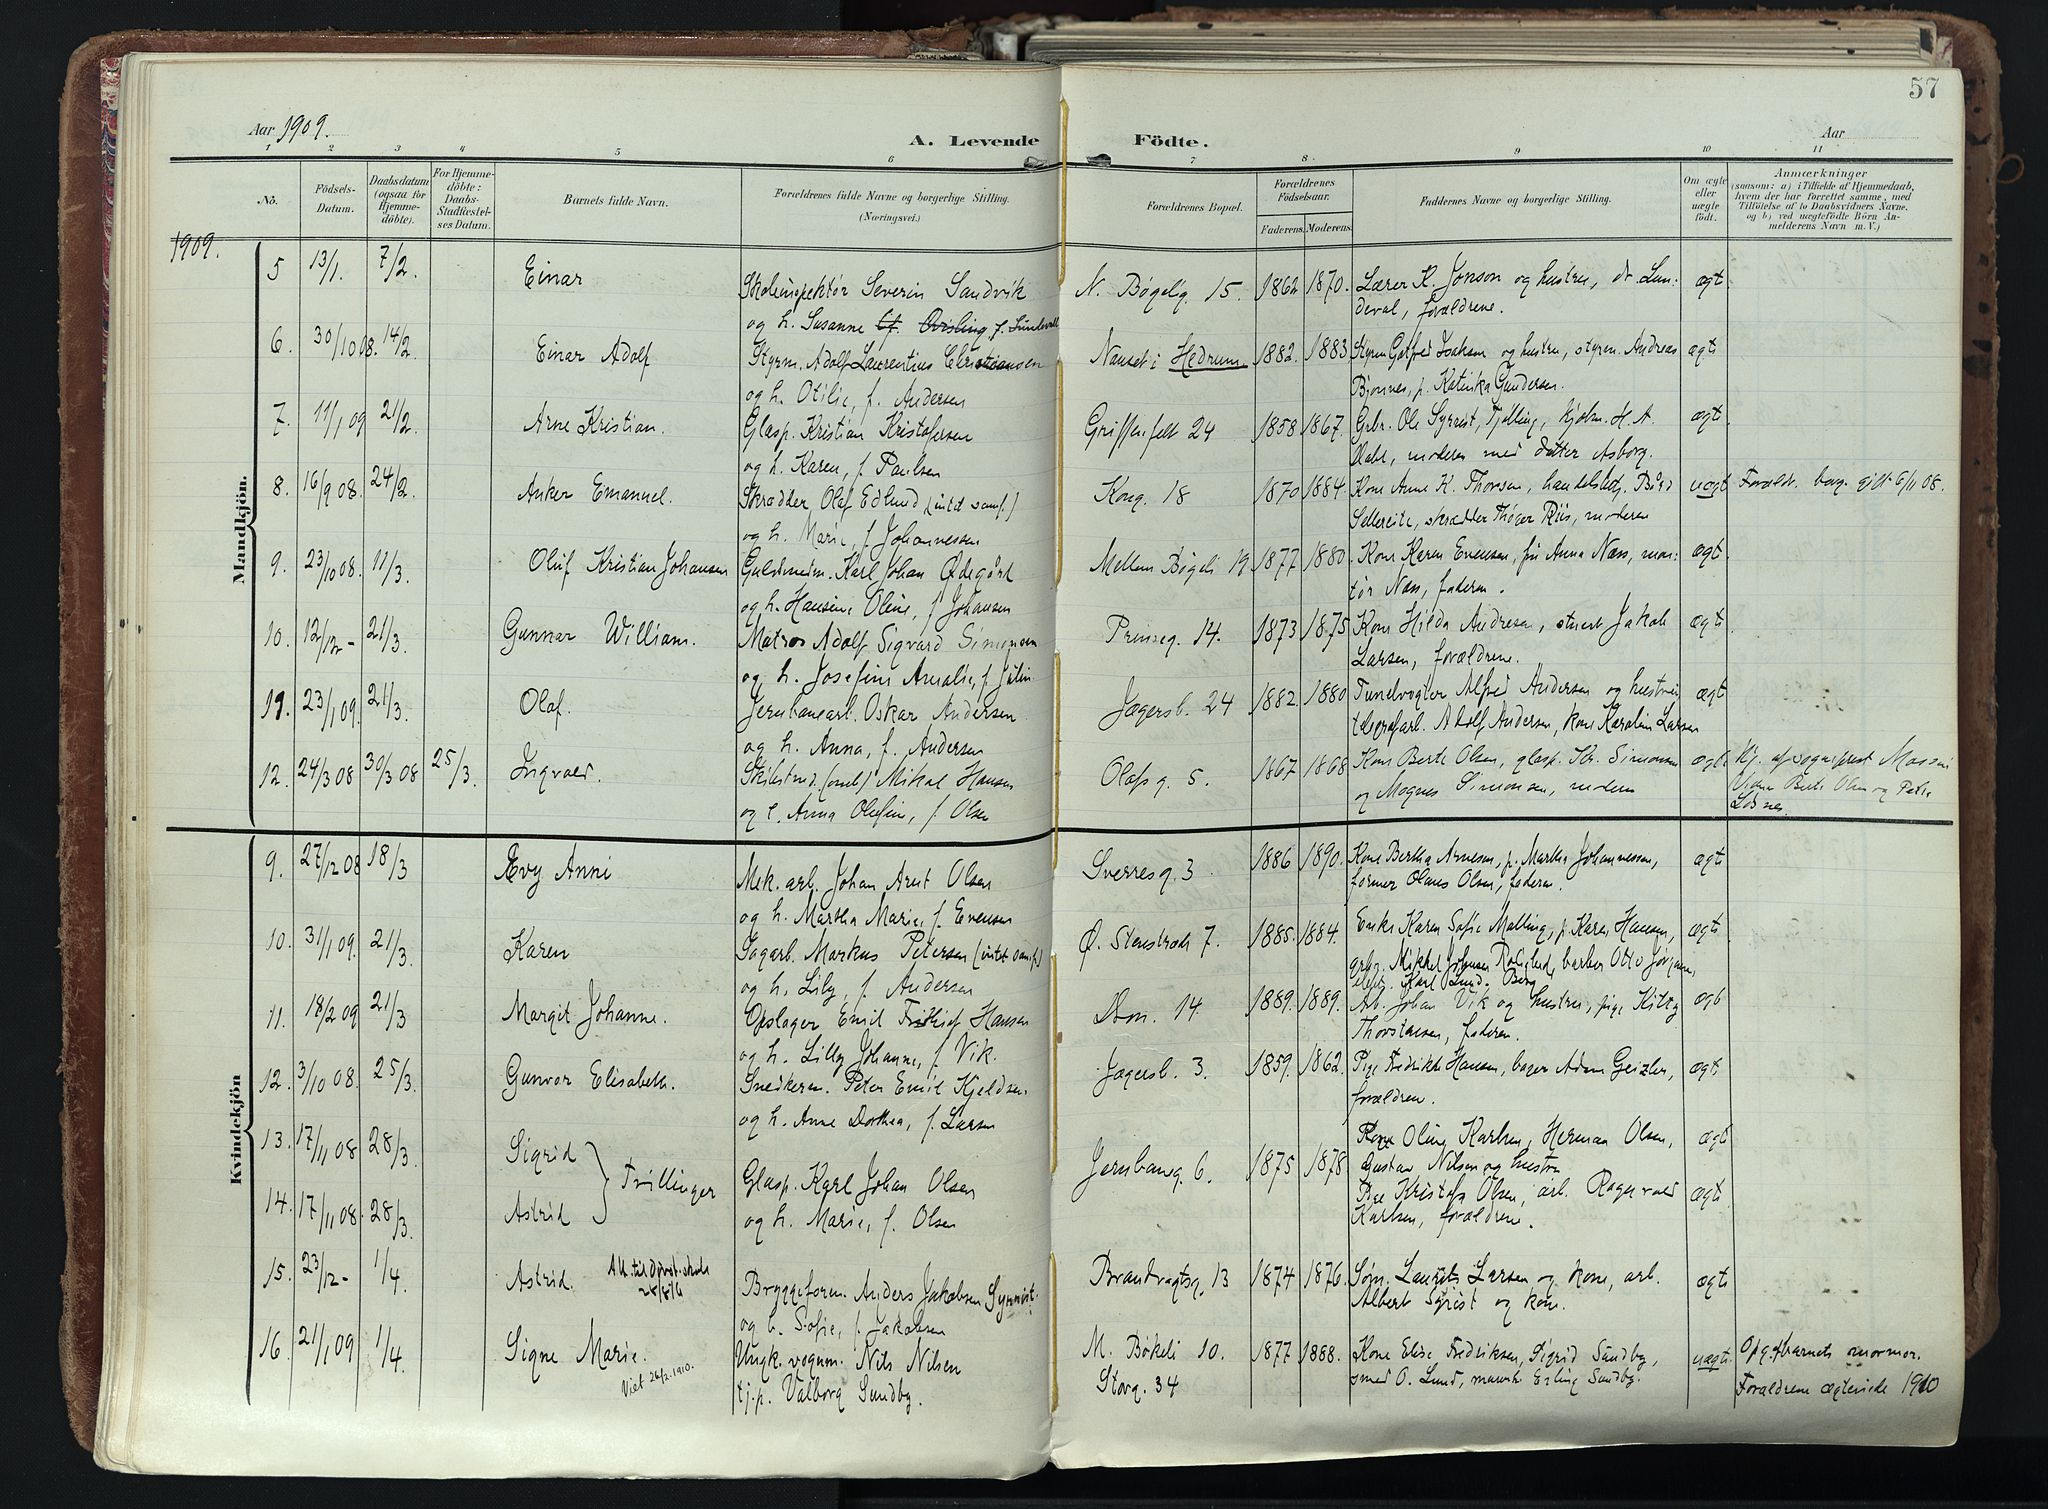 57
Aar 1909.
A. Levende Födte.
Aar
1 2 3 4 5 6 7 8 9 10 11
No. Födsels-Datum. Daabsdatum (ogsaa for Hjemme-döbte). For Hjemme-döbte: Daabs-Stadfæstel-ses Datum. Barnets fulde Navn. Forældrenes fulde Navne og borgerlige Stilling. (Næringsvei.) Forældrenes Bopæl. Forældrenes Födselsaar. Faderens. Moderens. Faddernes Navne og borgerlige Stilling. Om ægte eller uægte födt. Anmærkninger (saasom: a) i Tilfælde af Hjemmedaab, hvem der har forrettet samme, med Tilföielse af to Daabsvidners Navne. og b) ved uægtefödte Börn An-melderens Navn m. V.)
1909.
Mandkjön.
5 13/1. 7/2. Einar Skoleinspektör Severin Sandvik N. Bøgelig. 15. 1862 1870. Lærer K. Jonson og hustru, dr. Lun-
og h. Susanne f. Sundevall deval, forældrene. ægt
6. 30/10 08. 14/2. Einar Adolf Styrm. Adolf Laurentius Christiansen Nanset i Hedrum 1882. 1883. Styrm Gotfred Isaksen og hustru, styrm. Andreas ægt
og h. Otilie, f. Andersen Bjønnes, p. Katinka Gundersen.
7. 11/1 09 21/2. Arne Kristian. Glasp. Kristian Kristofersen Griffenfelt 24 1858 1867. Grbr. Ole Syrrist, Tjølling, kjøbm. H. A. ægt
og h. Karen, f. Paulsen moderen med datter Asborg.
8. 16/9 08. 24/2. Anker Emanuel. Skrædder Olaf Edlund (intet samf.) Kong. 18 1870 1884 Kone Anne K. Thorsen, handelsbetj. uægt Forældr. borg. gift 6/11 08.
og h. Marie, f. Johannessen skrædder Thøger Riis, moderen
9. 23/10 08. 11/3. Oluf Kristian Johansen Guldsmedm. Karl Johan Ødegård Mellem Bøgeli 19 1877 1880. Kone Karen Evensen, frk Anna Næss, mon- ægt
og h. Hansine Oline, f. Johansen tör Næss, faderen.
10. 12/12 - 21/3. Gunnar William. Matros Adolf Sigvard Simonsen Prinseg. 14. 1873 1875 Kone Hilda Andresen, stuert Jakob ægt
og h. Josefine Amalie, f. Larsen, forældrene.
11. 23/1 09. 21/3. Olaf. Jernbanearb. Oskar Andersen Jægersb. 24 1882. 1880 Tunelvogter Alfred Andersen og hustru ægt
og h. Anna, f. Andersen telegrafarb. Adolf Andersen, kone Karolin Larsen
12. 24/3 08 30/3 08 25/3. Ingvald. Mikal Hansen Olafsg. 5. 1867 1868 Kone Berte Olsen, glasp. Kr. Simonsen ægt Hj. af sogneprest
og h. Anna Olufine, f. Olsen og Magnus Simonsen, moderen Vidner Berte Olsen og
Kvindekjön
9. 27/12 08 18/3 Evy Anni Mek. arb. Johan Arnt Olsen Sverresg. 3. 1886 1890. Kone Bertha Arnesen, p. Martha Johannessen, ægt
og h. Martha Marie, f. Evensen former Olaus Olsen, faderen.
10. 31/1 09. 21/3. Karen Sagarb. Markus Petersen (intet samf.) Ø. Stenstrads 7. 1885. 1884. Enke Karen Sofie Malling, p. Karen Hansen, ægt
og h. Lily, f. Andersen barber Otto Jörgensen, Karl Lund.
11. 18/2 09 21/3 Margit Johanne. Opslager Emil Fridthjof Hansen Dron. 14 1889. 1889. Arb. Johan Vik og hustru, pige Kitty ægt
og h. Lilly Johanne, f. Vik. Thorstensen, faderen.
12. 3/10 08. 25/3. Gunvor Elisabeth. Snedkerm. Peter Emil Kjeldsen Jægersb. 3. 1859. 1862. Pige Fredrikke Hansen, bager Adam Geizler, ægt
og h. Anne Dorthea, f. Larsen forældrene.
13. 17/11 08 28/3. Sigrid Trillinger Glasp. Karl Johan Olsen Jernbaneg. 6. 1875 1878 Kone Oline Karlsen, Herman Olsen, ægt
Gustav Nilsen og hustru
14. 17/11 08. 28/3. Astrid og h. Marie, f. Olsen Pige Kristofa Olsen, arb. Ragnvald ægt
Karlsen, forældrene.
15. 23/12 - 1/4. Astrid. Bryggeform. Anders Jakobsen Syrrist. Brandvagtsg. 13 1874 1876. Sjøm. Laurits Larsen og kone, arb. ægt
og h. Sofie, f. Jakobsen Albert Syrist og kone.
16. 21/1 09 1/4. Signe Marie. Ungk. vognm. Nils Nilsen M. Bøkeli 10. 1877 1888. Kone Elise Fredriksen, Sigrid Sundby, uægt. Opg. af barnets mormor.
Viet 26/2. 1910. tj.p. Valborg Sundby. Storg. 34 smed O. Lund, Erling Sundby. Forældrene ægteviede 1910